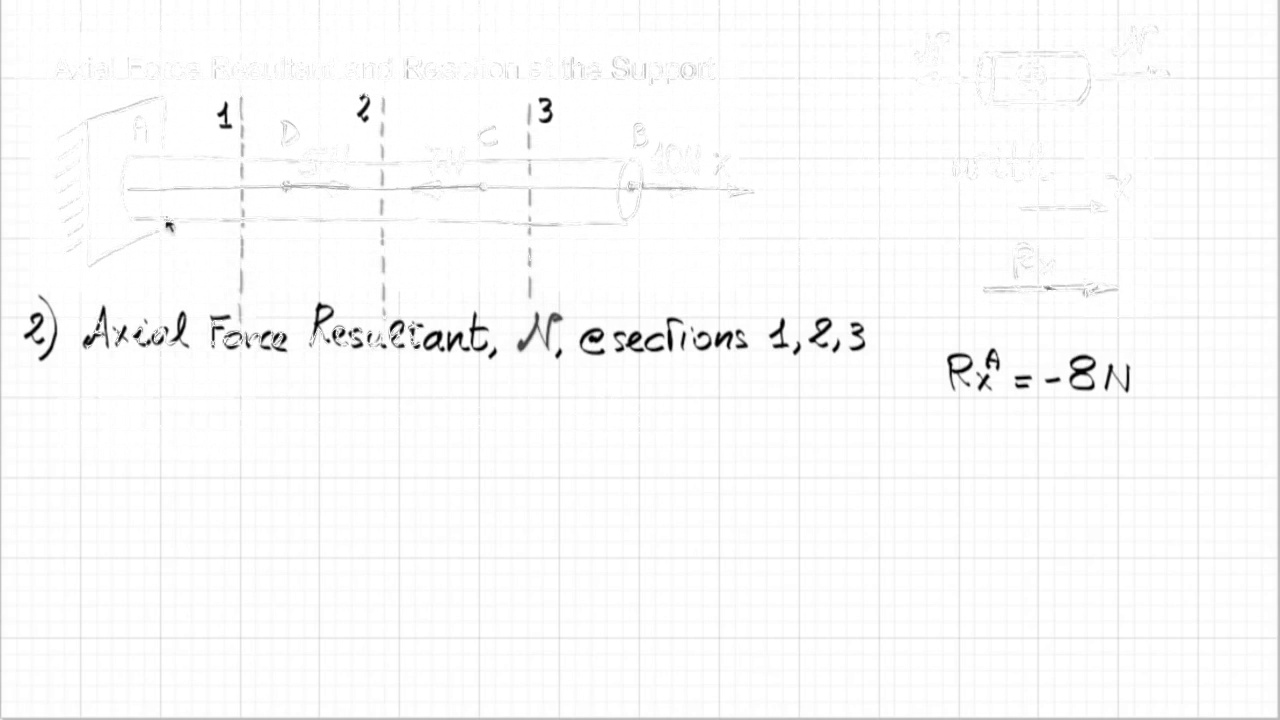 Axial Force Resultant and Reaction at the Support
N N
1 2 3
A D C B
7N 10N x
with
x
Rx
2) Axial Force Resultant, N, @ sections 1, 2, 3
RxA = -8N